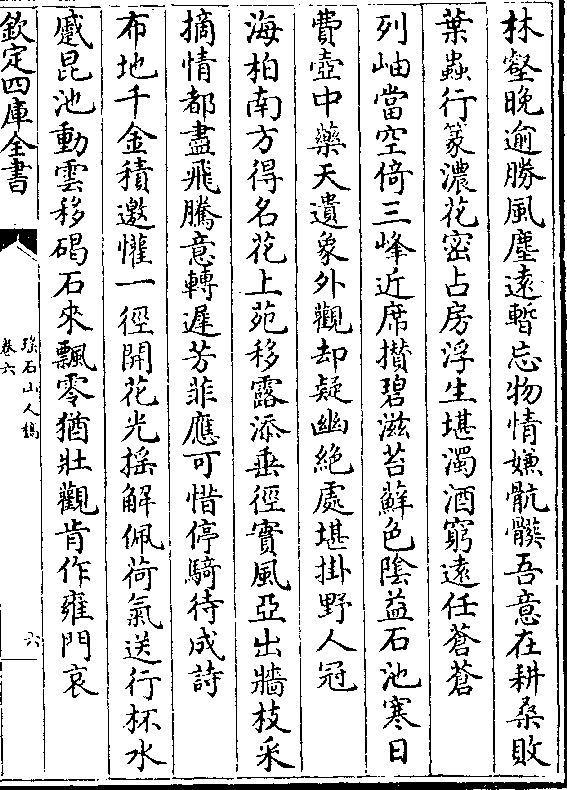 林壑晚逾勝風塵遠暫忘物情嫌骯髒吾意在耕桑敗
葉蟲行篆濃花密占房浮生堪濁酒窮遠任蒼蒼
列岫當空倚三峰近席攅碧滋苔蘚色陰益石池寒日
費壺中藥天遺象外觀却疑幽絶處堪掛野人冠
海柏南方得名花上苑移露添垂徑實風亞出牆枝采
摘情都盡飛騰意轉遲芳菲應可惜停騎待成詩
布地千金積邀懽一徑開花光摇解佩荷氣送行杯水
蹙昆池動雲移碣石來飄零猶壯觀肯作雍門哀
欽定四庫全書
瑤石山人稿
卷六
六